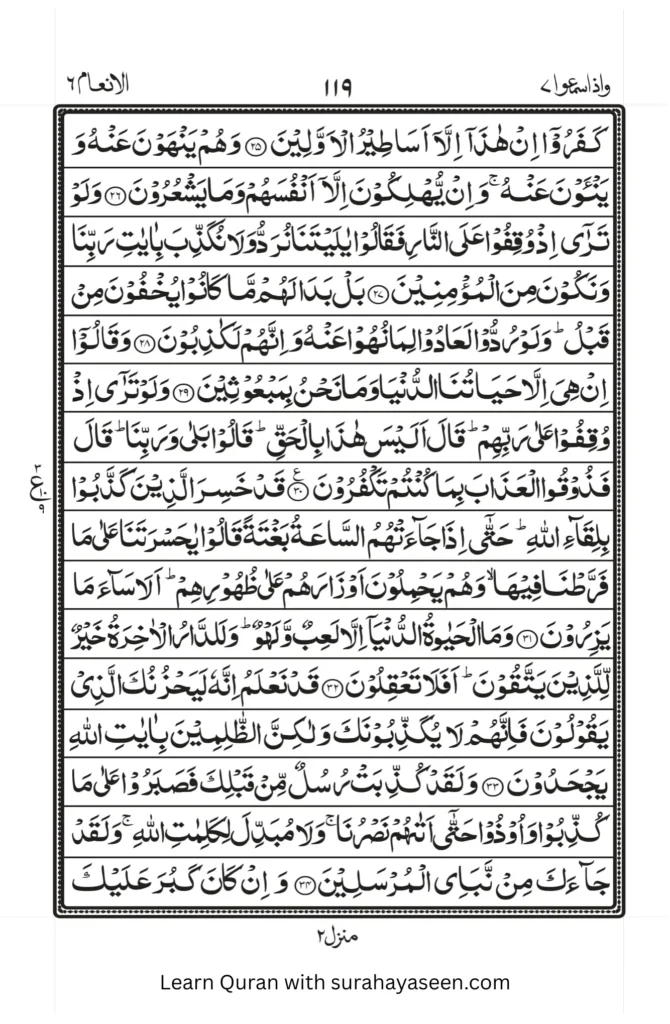 واذاسمعوا۷ ۱۱۹ الانعام ٦
كَفَرُوْۤا اِنْ هٰذَاۤ اِلَّاۤ اَسَاطِيْرُ الْاَوَّلِيْنَ ۝۲۵ وَهُمْ يَنْهَوْنَ عَنْهُ وَ
يَنْـَٔوْنَ عَنْهُ ۚ وَاِنْ يُّهْلِكُوْنَ اِلَّاۤ اَنْفُسَهُمْ وَمَا يَشْعُرُوْنَ ۝۲۶ وَلَوْ
تَرٰۤى اِذْ وُقِفُوْا عَلَى النَّارِ فَقَالُوْا يٰلَيْتَنَا نُرَدُّ وَلَا نُكَذِّبَ بِاٰيٰتِ رَبِّنَا
وَنَكُوْنَ مِنَ الْمُؤْمِنِيْنَ ۝۲۷ بَلْ بَدَا لَهُمْ مَّا كَانُوْا يُخْفُوْنَ مِنْ
قَبْلُ ؕ وَلَوْ رُدُّوْا لَعَادُوْا لِمَا نُهُوْا عَنْهُ وَاِنَّهُمْ لَكٰذِبُوْنَ ۝۲۸ وَقَالُوْۤا
اِنْ هِىَ اِلَّا حَيَاتُنَا الدُّنْيَا وَمَا نَحْنُ بِمَبْعُوْثِيْنَ ۝۲۹ وَلَوْ تَرٰۤى اِذْ
وُقِفُوْا عَلٰى رَبِّهِمْ ؕ قَالَ اَلَيْسَ هٰذَا بِالْحَقِّ ؕ قَالُوْا بَلٰى وَرَبِّنَا ؕ قَالَ
فَذُوْقُوا الْعَذَابَ بِمَا كُنْتُمْ تَكْفُرُوْنَ ۝۳۰ ع قَدْ خَسِرَ الَّذِيْنَ كَذَّبُوْا
بِلِقَآءِ اللّٰهِ ؕ حَتّٰۤى اِذَا جَآءَتْهُمُ السَّاعَةُ بَغْتَةً قَالُوْا يٰحَسْرَتَنَا عَلٰى مَا
فَرَّطْنَا فِيْهَا ۙ وَهُمْ يَحْمِلُوْنَ اَوْزَارَهُمْ عَلٰى ظُهُوْرِهِمْ ؕ اَلَا سَآءَ مَا
يَزِرُوْنَ ۝۳۱ وَمَا الْحَيٰوةُ الدُّنْيَاۤ اِلَّا لَعِبٌ وَّلَهْوٌ ؕ وَلَلدَّارُ الْاٰخِرَةُ خَيْرٌ
لِّلَّذِيْنَ يَتَّقُوْنَ ؕ اَفَلَا تَعْقِلُوْنَ ۝۳۲ قَدْ نَعْلَمُ اِنَّهٗ لَيَحْزُنُكَ الَّذِىْ
يَقُوْلُوْنَ فَاِنَّهُمْ لَا يُكَذِّبُوْنَكَ وَلٰكِنَّ الظّٰلِمِيْنَ بِاٰيٰتِ اللّٰهِ
يَجْحَدُوْنَ ۝۳۳ وَلَقَدْ كُذِّبَتْ رُسُلٌ مِّنْ قَبْلِكَ فَصَبَرُوْا عَلٰى مَا
كُذِّبُوْا وَاُوْذُوْا حَتّٰۤى اَتٰهُمْ نَصْرُنَا ۚ وَلَا مُبَدِّلَ لِكَلِمٰتِ اللّٰهِ ۚ وَلَقَدْ
جَآءَكَ مِنْ نَّبَاِى الْمُرْسَلِيْنَ ۝۳۴ وَاِنْ كَانَ كَبُرَ عَلَيْكَ
منزل۲
Learn Quran with surahayaseen.com